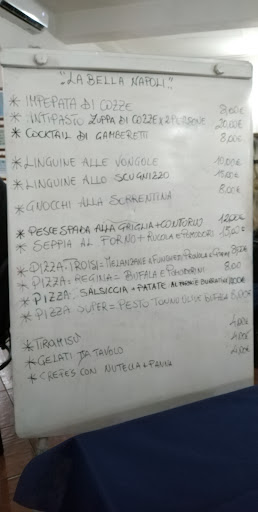 "LA BELLA NAPOLI"
* IMPEPATA DI COZZE 8,00€
* ANTIPASTO ZUPPA DI COZZE X 2 PERSONE 20,00€
* COCKTAIL DI GAMBERETTI 8,00€
* LINGUINE ALLE VONGOLE 10,00€
* LINGUINE ALLO SCUGNIZZO
* GNOCCHI ALLA SORRENTINA 8,00€
* PESCE SPADA ALLA GRIGLIA + CONTORNO 12,00€
* SEPPIA AL FORNO + RUCOLA E POMODORI
* PIZZA TROISI = MELANZANE A FUNGHETTO PROVOLA E
* PIZZA REGINA = BUFALA E POMODORINI 8,00
* PIZZA SALSICCIA + PATATE AL FORNO E
* PIZZA SUPER = PESTO TONNO OLIVE BUFALA
* TIRAMISÙ 4,00€
* GELATI DA TAVOLO 4,00€
* CREPES CON NUTELLA + PANNA 4,00€